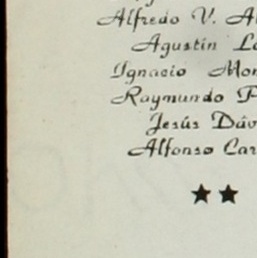 Alfredo V. A
Agustín L
Ignacio Mon
Raymundo
Jesús Dáv
Alfonso Car